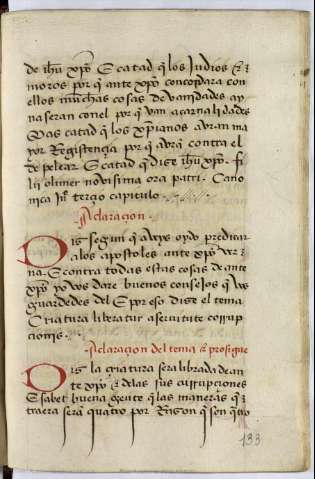 de ihũ xp̃o E catad q̃ los Judios τ
moros por q̃ ante xp̃o concordara con
ellos muchas cosas de vanidades ay
na seran con el por q̃ van a carnalidades
Mas catad q̃ los xp̃ianos auran ma
yor Registencia por q̃ aura contra el
de pelear E catad q̃ dize ihũ xp̃o fi
lii
nouisima ora Cano
nica
tercio capitulo
Aclaracion
Dis segun q̃ aueys oydo predicar
a los apostoles ante xp̃o ver
na E contra todas estas cosas de ante
xp̃o yo vos dare buenos consejos q̃ vos
guardedes del E por eso dize el tema
Criatura liberatur a seruitute corrup
cionis
Aclaracion del tema τ prosigue
Dis la criatura sera librada de an
te xp̃o τ de las sus currupciones
E sabet buena gente q̃ las maneras q̃
traera seran quatro por Razon q̃ son q̃tro
133